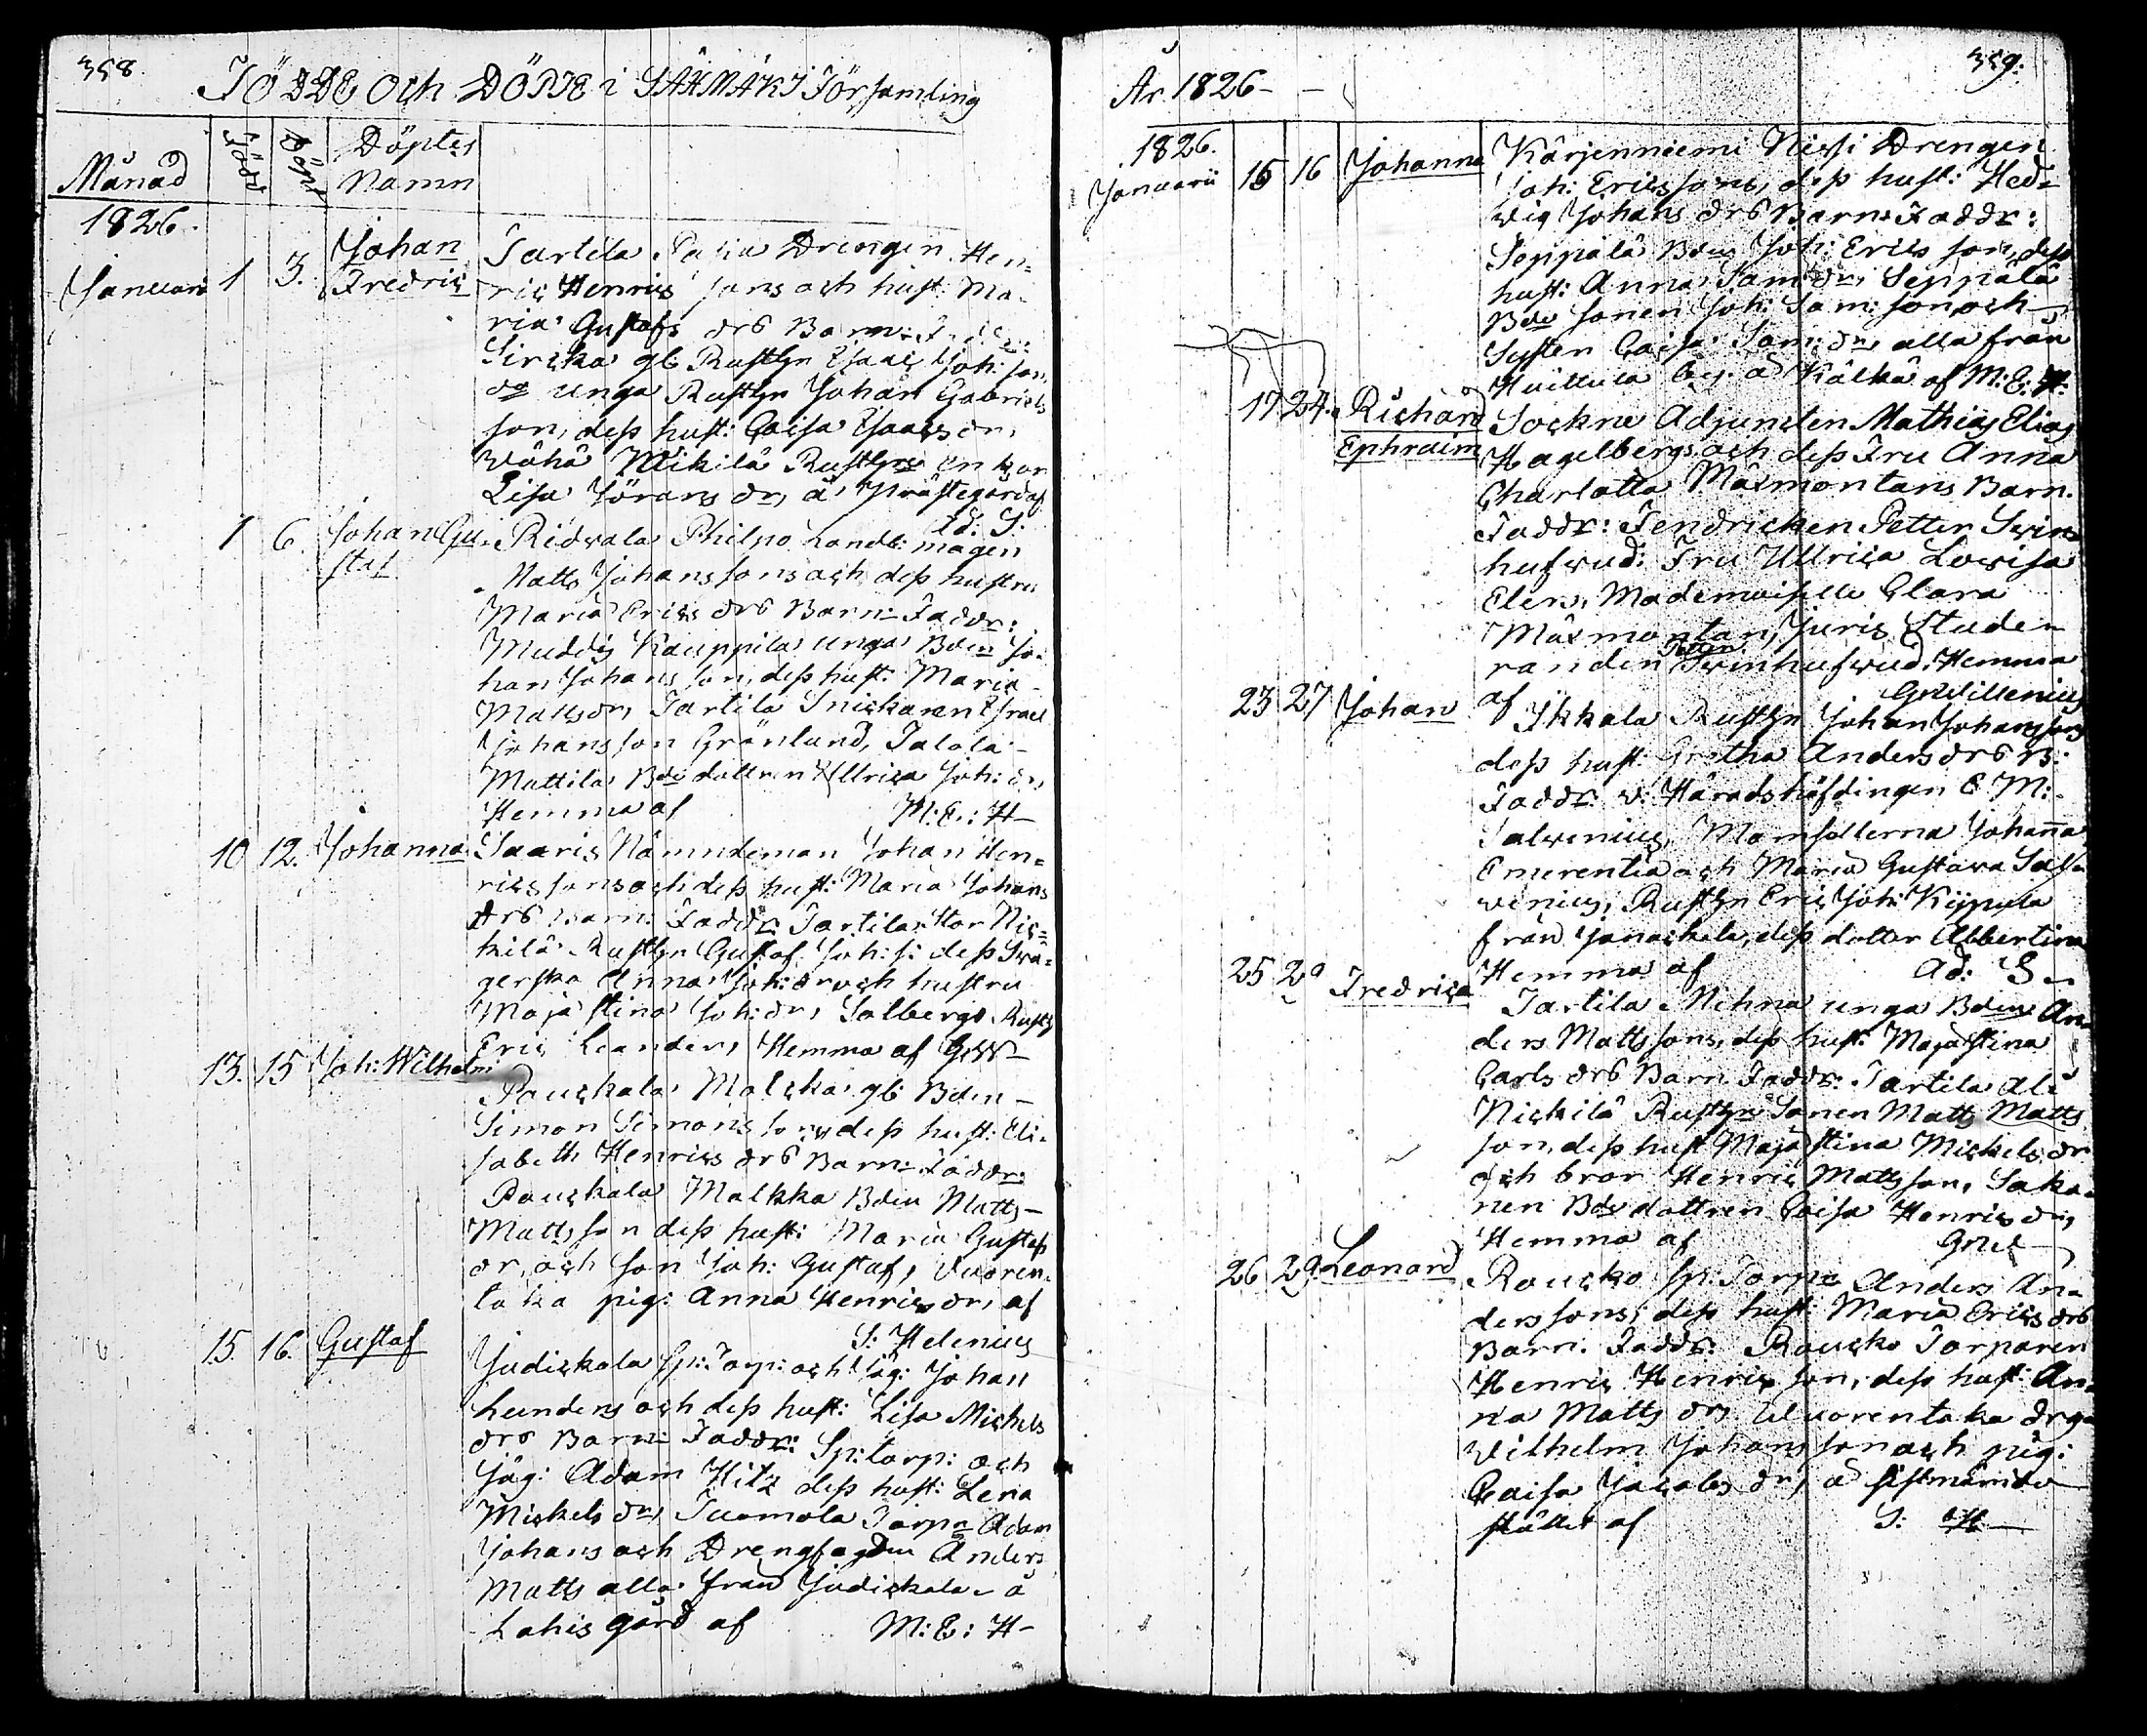 358.
FÖDDE och DÖPTE i SÄÄMÄKI Församling
Månad Född Döpt Döptes Namn
1826.
Januarii 1 3. Johan Fredric
Tartila Drengen Hen=
ric Henrics sons och hust: Ma-
ria Gustafs drs Barn:
Sircka gb: Rusth:n Isaac Joh: son,
do unga Rusth:n Johan Gabriels
son, dess hust: Caisa Isaacs dr,
Wähä Mikilä Rusth:ns enkan
Lisa Görans dr, å Prästegård af
Ad: S:
1 6. Johan Gu-
staf
Ridvala Philpo Lands: mågen
Matts Johanssons och dess hustru
Maria Erics drs Barn. Faddr:
Muddis Kauppila unga Bden Jo-
han Johans son, dess hust: Maria
Matts dr, Tartila Snickaren Israel
Johansson Grönlund, Talola
Mattila Bde dottren Ullrica Joh: dr,
Hemma af M: E: H-
10 12. Johanna
Saaris Nämndeman Johan Hen=
rics sons och dess hust: Maria Johans
drs Barn: Faddr: Tartila Stor Nic=
kilä Rusth:n Gustaf Joh: s: dess Swä-
gerska Anna Joh: dr och hustru
Maja Stina Joh: dr, Salbergs Rusth
Eric Leander, Hemma af GW-
13. 15 Joh: Wilhelm
Pauckala Malcka gb: Bden-
Simon Simons sons, dess hust: Eli-
sabeth Henrics drs Barn: Faddr:
Pauckala Malkka Bden Matts-
Matts son dess hust: Maria Gustafs
dr, och son Joh: Gustaf, Vuoren-
taka pig: Anna Henrics dr, af
S: Helenius
15. 16. Gustaf
Judickala Sp: Torp: och Jäg: Johan
Lunders och dess hust: Lisa Michels
drs Barn: Faddr: Sp: torp: och
Jäg: Adam Hitz dess hust: Lena
Mickels dr, Tuomola Torp:n Adam
Johans och Drengfogden Anders
Matts alla från Judickala å
Lahis gård af M: E: H-
359.
År 1826-
1826.
Januarii 15 16 Johanna
Kärjenniemi Nissi Drengen
Joh: Ericssons, dess hust: Hed=
vig Johans drs Barn: Faddr:
Seppälä Bden Joh: Erics son, dess
hust: Anna Sam: dr, Seppälä
Bde sonen Joh: Sam: son och
Syster Caisa Sam: dr, alla från
Huittula by å Kälkä af M: E: H:
17 24. Richard
Ephraim
Sockne Adjuncten Mathias Elias
Hagelbergs och dess Fru Anna
Charlotta Mäxmontans Barn.
Faddr: Fendricken Petter Swin
hufvud: Fru Ullrica Lovisa
Elers, Mademoiselle Clara
Mäxmontan, Juris Stude-
randen Petter Swinhufvud. Hemma
af GWillenius
23 27 Johan
Ikkala Rusth:n Johan Johanssons
dess hust: Gretha Anders drs B:
Faddr: v: Häradshöfdingen E M:
Salvenius, Mamsellerna Johanna
Emerentia och Maria Gustava Sal=
venius, Rusth:n Eric Joh: Kijpula
från Janackala, dess dotter Albertina
Hemma af Ad: S-
25 29 Fredrica
Tartila Mehna unga Bden An-
ders Matts sons, dess hust: Maja Stina
Carls drs Barn Faddr: Tartila Ali
Nickilä Rusth:ns Sonen Matts Matts
son, dess hust Maja Stina Mickels dr
och bror Henric Matts son, Saka-
nen Bde dottren Caisa Henrics dr,
Hemma af GWil
26 29. Leonard
Roucko sp: Torp:n Anders An-
ders sons, dess hust: Maria Erics drs
Barn. Faddr: Roucko Torparen
Henric Henrics son, dess hust: An-
na Matts dr, Wuorentaka drgn
Wilhelm Johans son och pig:
Caisa Jacobs dr, å sistnämnde
stället af S: H-